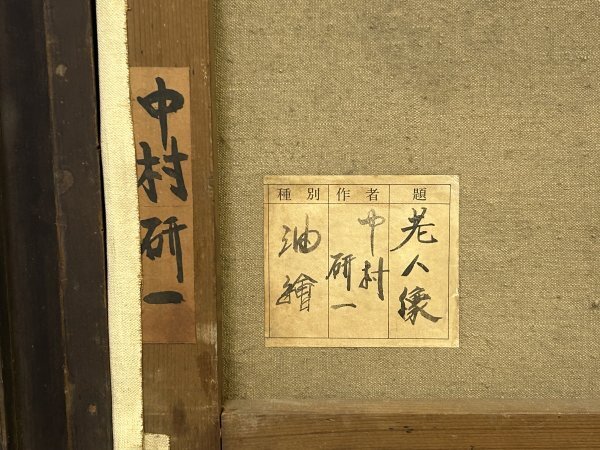 中村研一
題
老人像
作者
中村
研一
種別
油繪